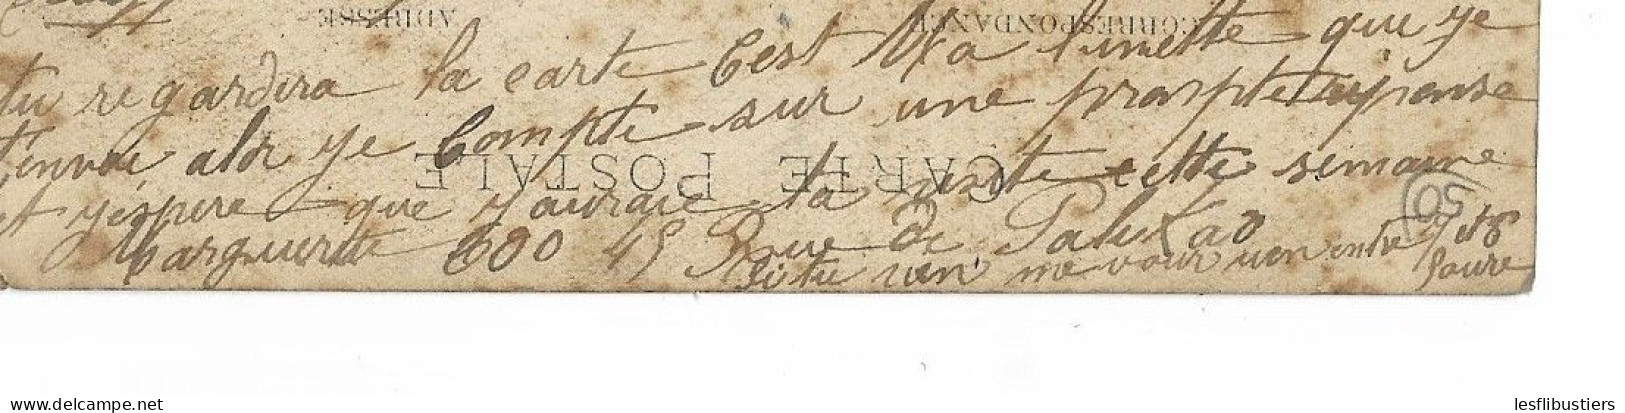 ADRESSE CORRESPONDANCE
tu regardera la carte C'est Ma binette que je
t'envoi alor je Compte sur une prompte reponse
CARTE POSTALE
et j'espere que j'aurai ta visite cette semaine
Marguerite 600 45 Rue de Palikao
Si tu vien me voir vien entre 7 et 8
50
heure
www.delcampe.net
lesflibustiers